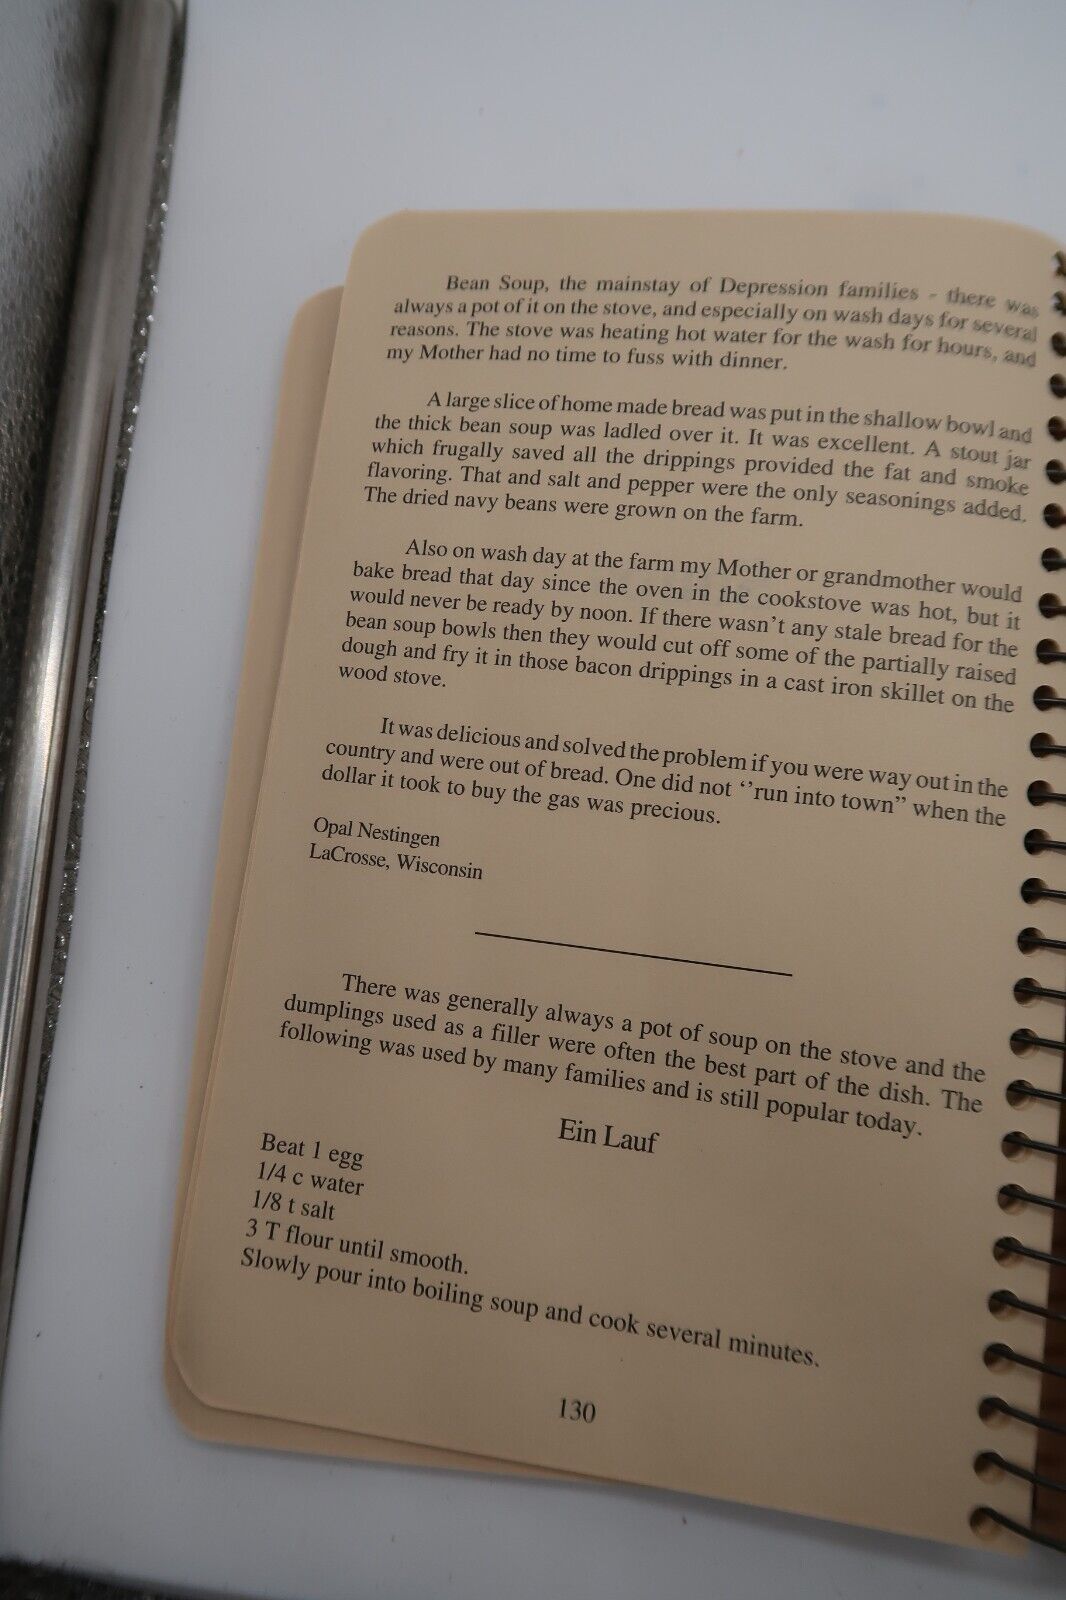 Bean Soup, the mainstay of Depression families - there was
always a pot of it on the stove, and especially on wash days for several
reasons. The stove was heating hot water for the wash for hours, and
my Mother had no time to fuss with dinner.
A large slice of home made bread was put in the shallow bowl and
the thick bean soup was ladled over it. It was excellent. A stout jar
which frugally saved all the drippings provided the fat and smoke
flavoring. That and salt and pepper were the only seasonings added.
The dried navy beans were grown on the farm.
Also on wash day at the farm my Mother or grandmother would
bake bread that day since the oven in the cookstove was hot, but it
would never be ready by noon. If there wasn't any stale bread for the
bean soup bowls then they would cut off some of the partially raised
dough and fry it in those bacon drippings in a cast iron skillet on the
wood stove.
It was delicious and solved the problem if you were way out in the
country and were out of bread. One did not ‘’run into town” when the
dollar it took to buy the gas was precious.
Opal Nestingen
LaCrosse, Wisconsin
There was generally always a pot of soup on the stove and the
dumplings used as a filler were often the best part of the dish. The
following was used by many families and is still popular today.
Ein Lauf
Beat 1 egg
1/4 c water
1/8 t salt
3 T flour until smooth.
Slowly pour into boiling soup and cook several minutes.
130